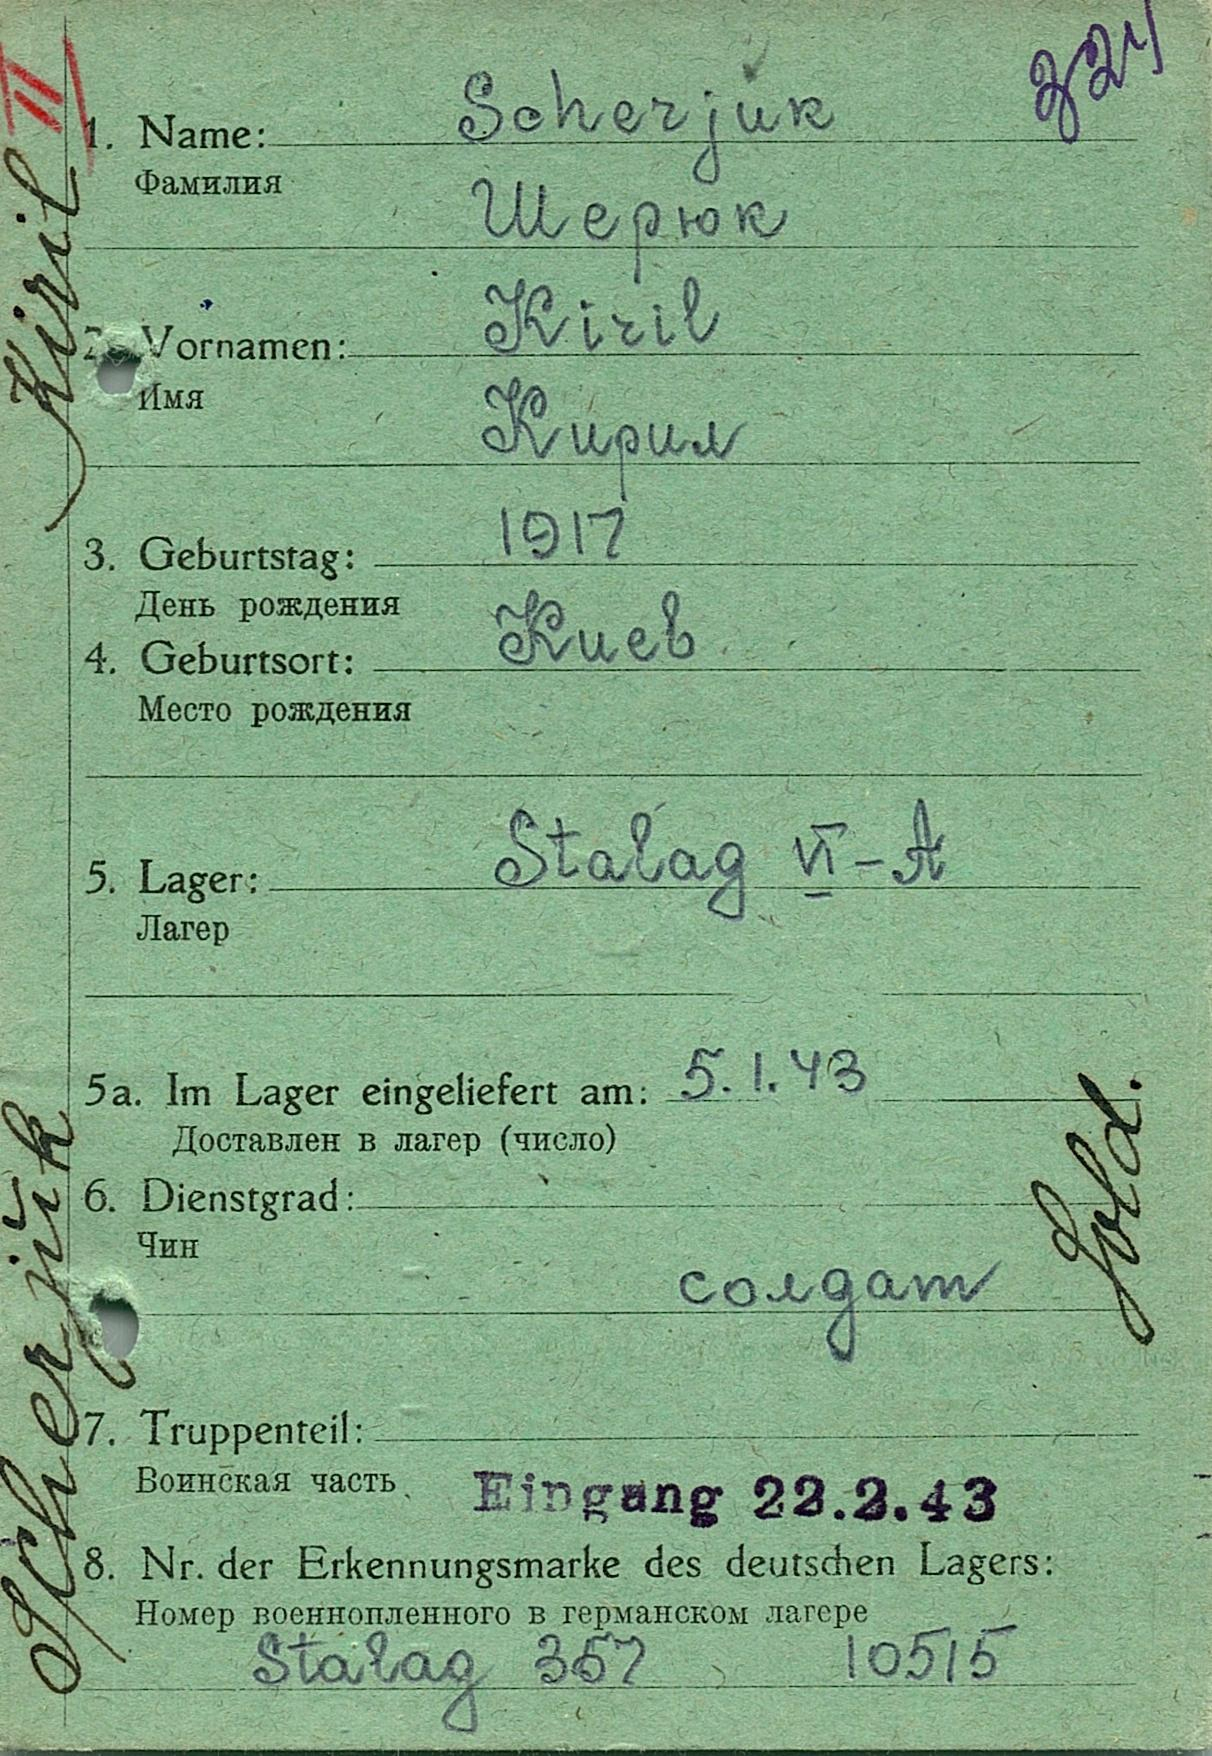 II
324
1. Name: Scherjuk
Фамилия
Шерюк
2. Vornamen: Kiril
Имя
Кирил
3. Geburtstag: 1917
День рождения
4. Geburtsort: Киев
Место рождения
5. Lager: Stalag VI-A
Лагер
5a. Im Lager eingeliefert am: 5.1.43
Доставлен в лагер (число)
6. Dienstgrad:
Чин
солдат
Sold.
7. Truppenteil:
Воинская часть
Eingang 22.2.43
8. Nr. der Erkennungsmarke des deutschen Lagers:
Номер военнопленного в германском лагере
Stalag 357 10515
Scherjŭk Kiril